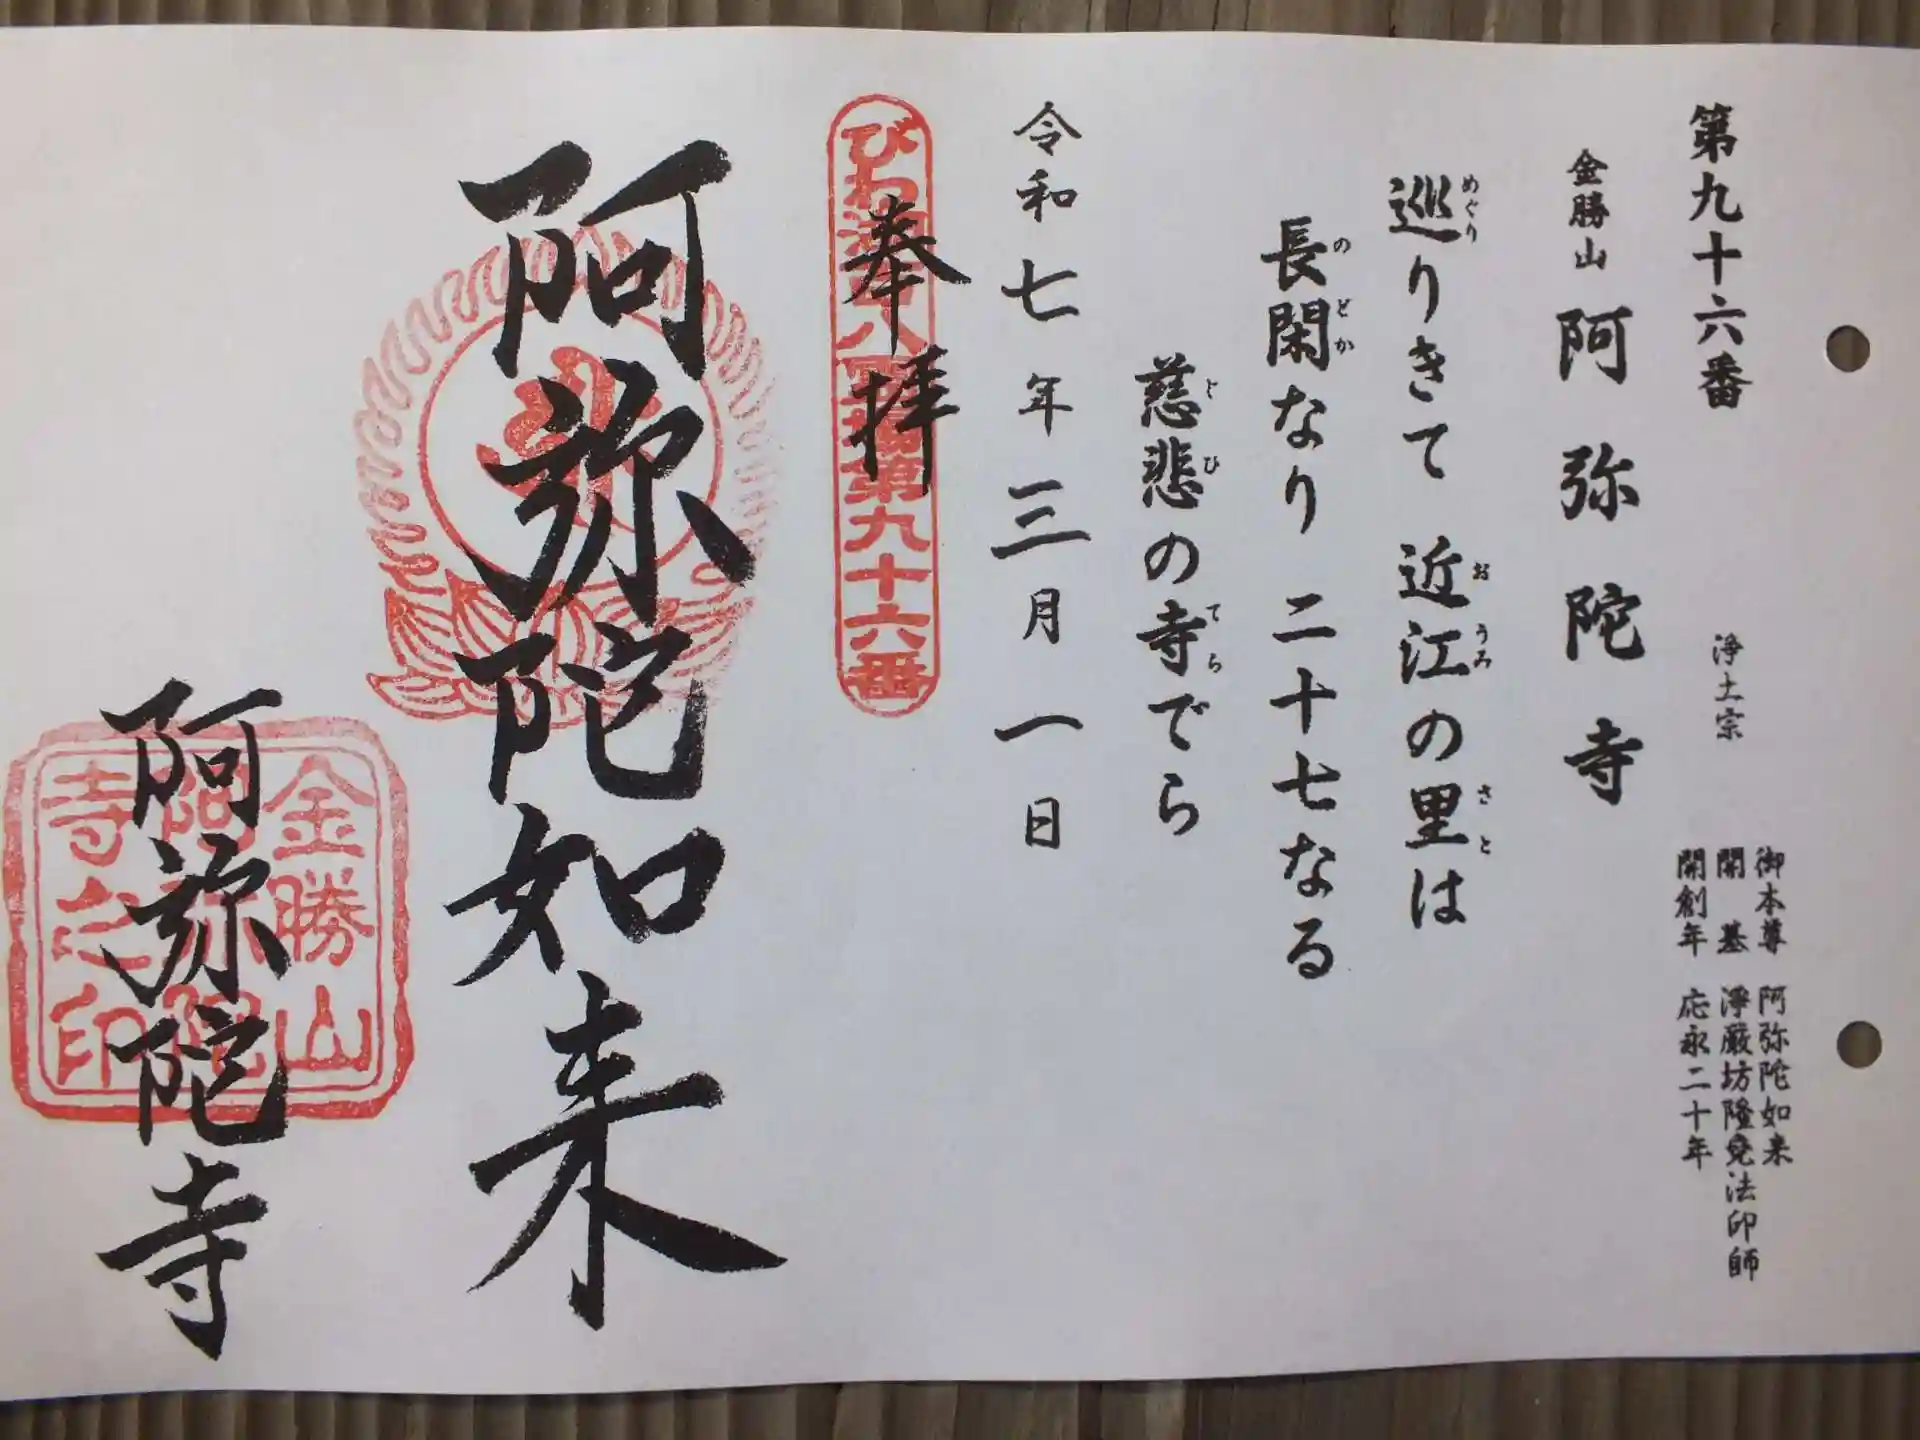 第九十六番
浄土宗
御本尊 阿弥陀如来
開基 浄厳坊隆尭法印師
開創年 応永二十年
金勝山 阿弥陀寺
巡りきて 近江の里は
めぐり おうみ さと
長閑なり 二十七なる
のどか
慈悲の寺でら
じひ てら
令和七年三月一日
奉拝
びわ湖百八霊場第九十六番
阿弥陀如来
阿弥陀寺
金勝山
阿弥陀
寺之印